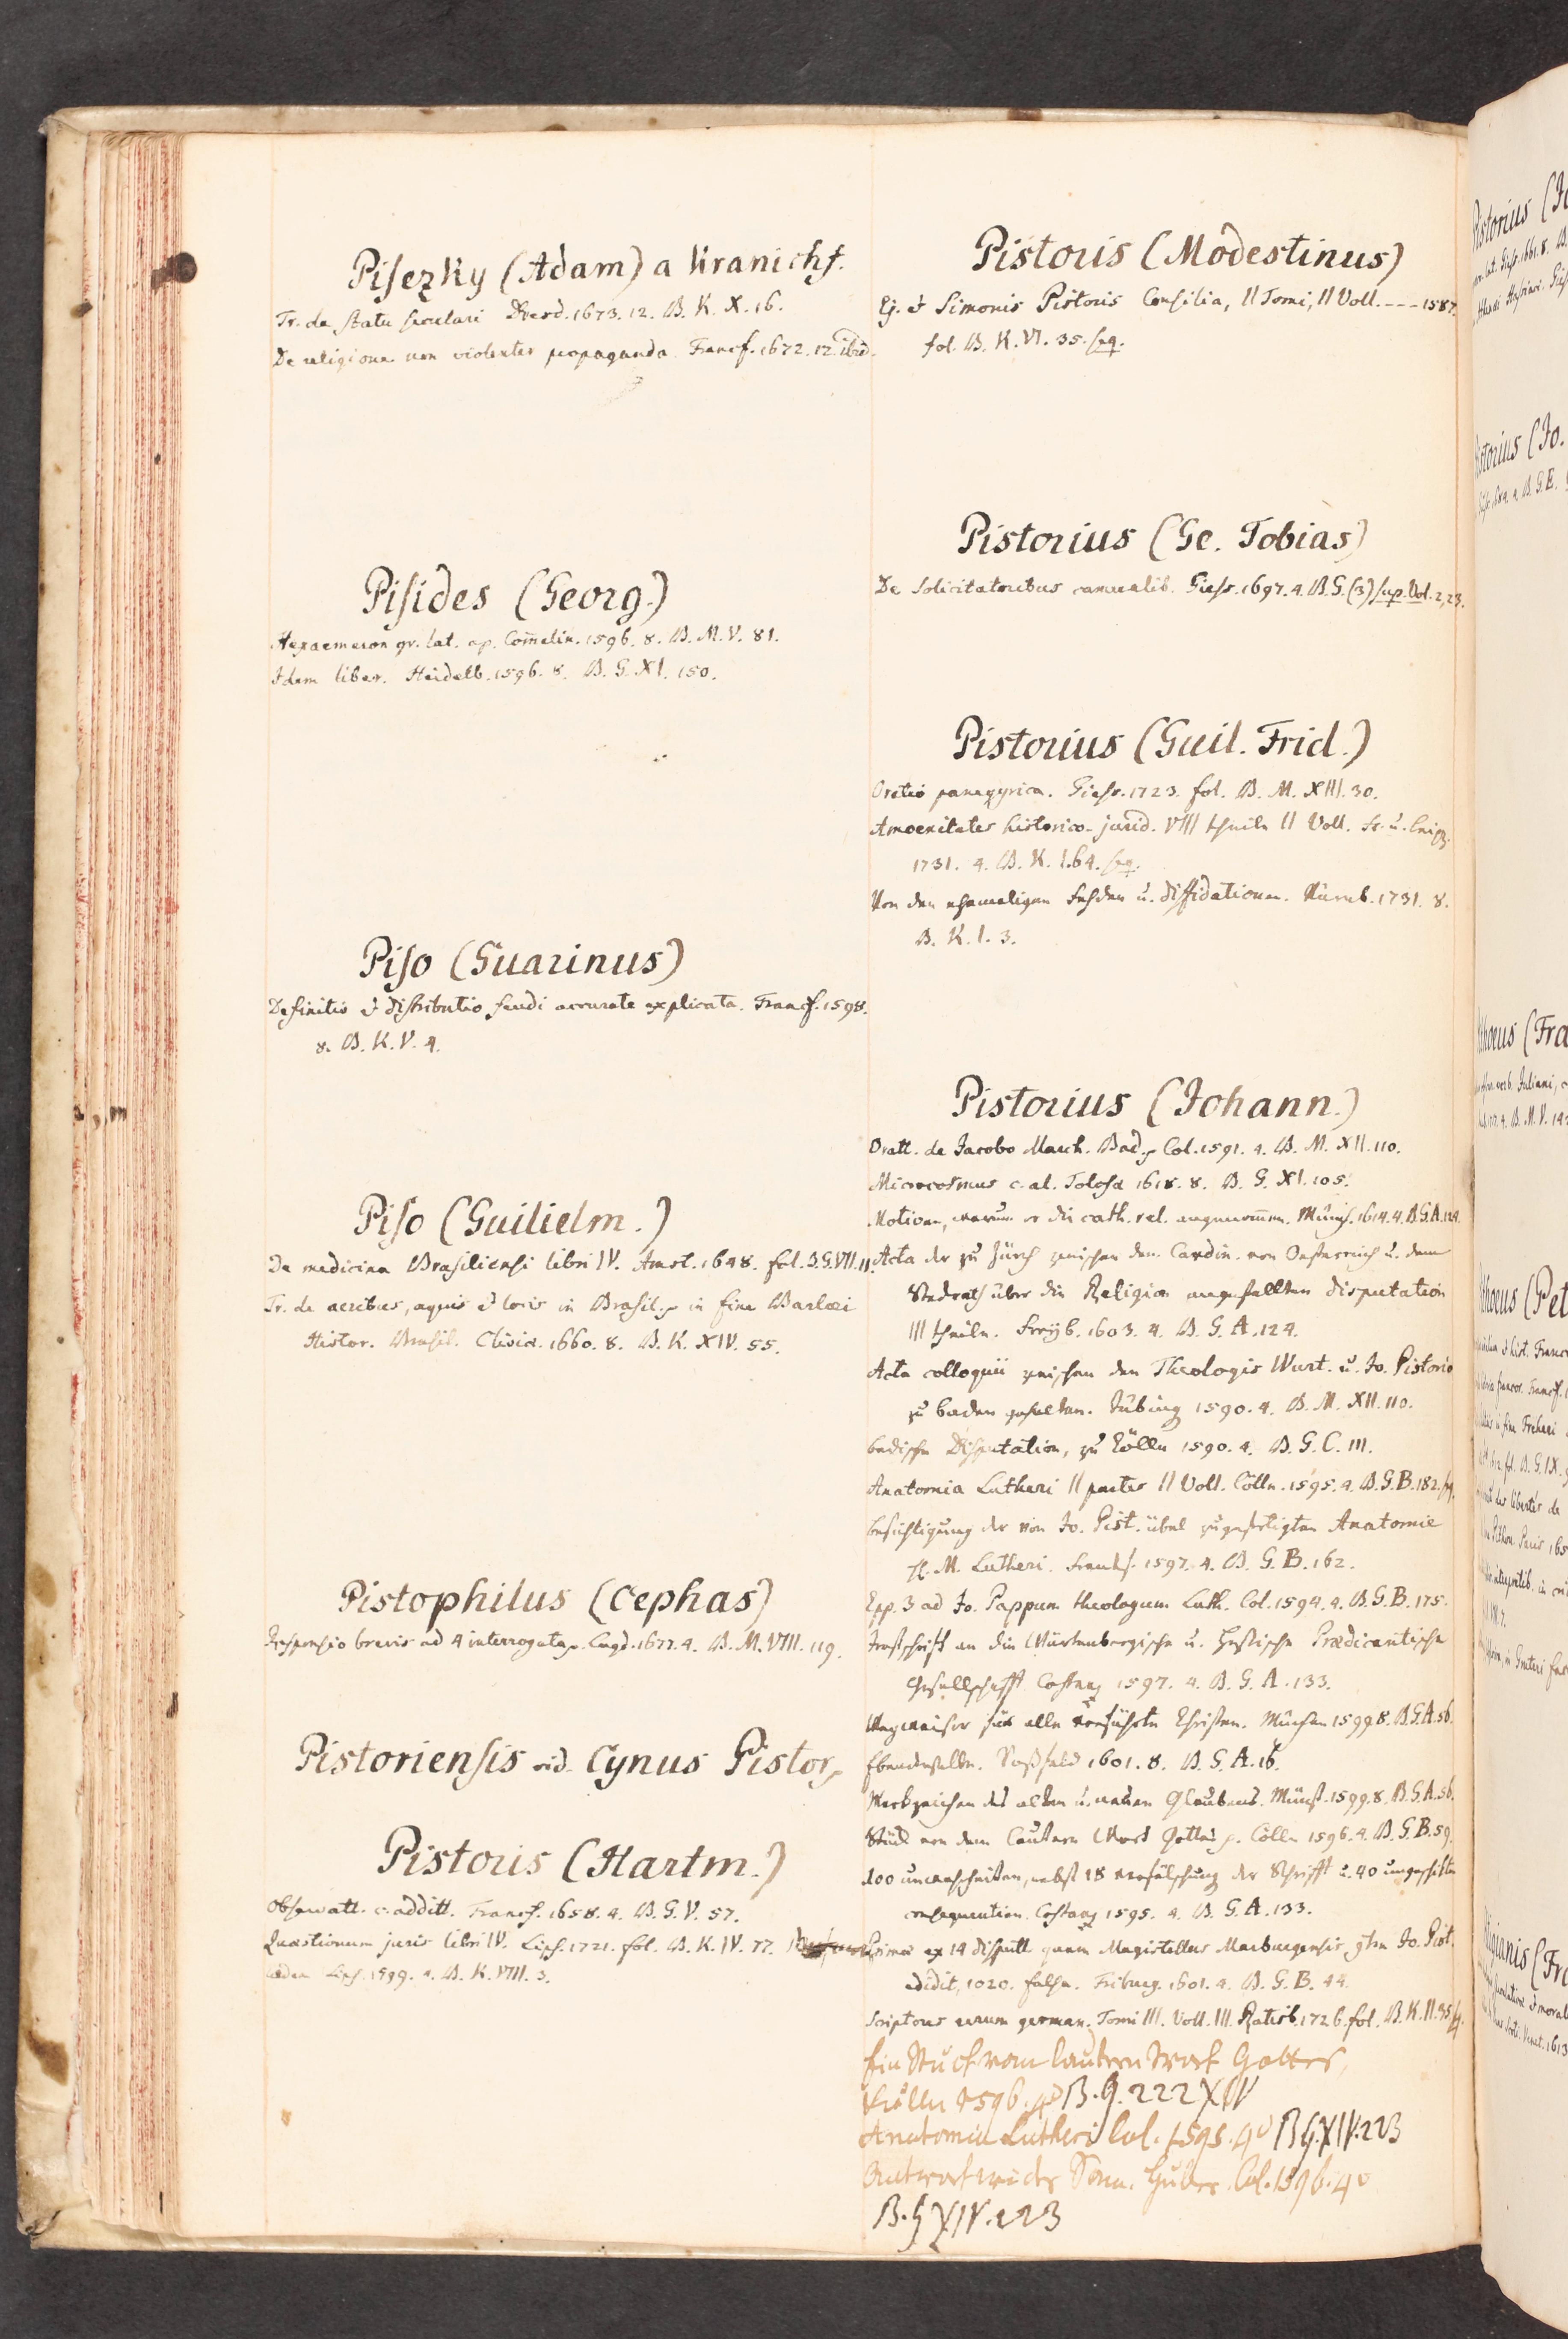 Pisezky (Adam) a Kranichf.
Tr. de statu seculari Dresd. 1673. 12. B. K. X. 16.
De religione non violenter propaganda. Francf. 1672. 12. ibid.
Pisides (Georg.)
Hexaemeron gr. lat. ap. Comelin. 1596. 8. B. M. V. 81.
Idem liber. Heidelb. 1596. 8. B. G. XI. 150.
Piso (Guarinus)
Definitio & distributio feudi accurate explicata. Francf. 1598.
8. B. K. V. 4.
Piso (Guilielm.)
De medicina Brasiliensi libri IV. Amst. 1648. fol. B. G. VII. 11.
Tr. de aeribus, aquis & locis in Brasil. in fine Barlæi
Histor. Brasil. Clivia. 1660. 8. B. K. XIV. 55.
Pistophilus (Cephas)
Responsio brevis ad 4 interrogata. Lugd. 1677. 4. B. M. VIII. 119.
Pistoriensis vid. Cynus Pistor.
Pistoris (Hartm.)
Observatt. c. additt. Francf. 1658. 4. B. G. V. 57.
Quæstionum juris libri IV. Lips. 1721. fol. B. K. IV. 77.
eædem Lips. 1599. 4. B. K. VIII. 3.
Pistoris (Modestinus)
Ej. & Simonis Pistoris Consilia, II Tomi, II Voll. --- 1587.
fol. B. K. VI. 35. seq.
Pistorius (Ge. Tobias)
De Solicitatoribus cameralib. Giess. 1697. 4. B. G. (3) sup. Vol. 2, 23.
Pistorius (Guil. Frid.)
Oratio panegyrica. Giess. 1723. fol. B. M. XIII. 30.
Amoenitates historico-jurid. VIII theile II Voll. Fr. u. Leipz.
1731. 4. B. K. I. 64. seq.
Von den ehemaligen Fehden u. diffidationen. Nürnb. 1731. 8.
B. K. I. 3.
Pistorius (Johann.)
Oratt. de Jacobo March. Bad. Col. 1591. 4. B. M. XII. 110.
Microcosmus c. al. Tolosæ 1618. 8. B. G. XI. 105.
Motiven, warum er die cath. rel. angenommen. Münch. 1614. 4. B. G. A. 124.
Acta der zu Zürch zwischen dem Cardin. von Oesterreich u. dem
Stadrath über die Religion angestellten disputation
III theile. Freyb. 1603. 4. B. G. A. 124.
Acta colloquii zwischen den Theologis Wurt. u. Jo. Pistorio
zu baden gehalten. Tübing 1590. 4. B. M. XII. 110.
badische Disputation, zu Cölln 1590. 4. B. G. C. 111.
Anatomia Lutheri II partes II Voll. Cölln. 1595. 4. B. G. B. 182. sq.
besichtigung der von Jo. Pist. übel zugefertigten Anatomie
M. Lutheri. Frankf. 1597. 4. B. G. B. 162.
Epp. 3 ad Jo. Pappum theologum Luth. Col. 1594. 4. B. G. B. 175.
Trostschrift an die Würtenbergische u. Hessische Prædicantische
Gesellschafft Costanz 1597. 4. B. G. A. 133.
Wegweiser für alle verführte Christen. München 1599 8. B. G. A. 56.
Ebendasselbe. 1601. 8. B. G. A. 16.
Merkzeichen des alten u. neuen Glaubens. Münst. 1599. 8. B. G. A. 56.
Stück von dem Lautern Wort Gottes. Cölln 1596. 4. B. G. B. 59.
100 unwarheiten, nebst 18 verfälschung der Schrifft u. 40 ungeschikte
consequentien. Costanz 1595. 4. B. G. A. 133.
Primæ ex 14 disputt. quam Magistellus Marburgensis gtra Jo. Pist.
edidit, 1020. falsa. Friburg. 1601. 4. B. G. B. 44.
Scriptores rerum german. Tomi III. Voll. III. Ratisb. 1726. fol. B. K. II. 35. sq.
Ein Stuck vom lautern Wort Gottes,
Kölln 1596. 4º B. G. 222 XIV
Anatomia Lutheri Col. 1595. 4º B G. XIV. 223
Antwort wider Sam. Huber. Col. 1596. 4º
B. G XIV. 223